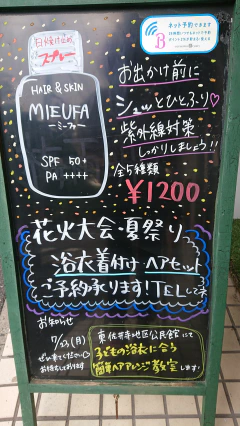 日焼け止め
スプレー
ネット予約できます
B
HAIR & SKIN
MIEUFA
ミーファー
SPF 50+
PA ++++
お出かけ前に
シュッとひとふり♡
紫外線対策
しっかりしましょう!!
全5種類
¥1200
花火大会・夏祭り
浴衣着付・ヘアセット
ご予約承ります!TEL
お知らせ
7/23(月)
ぜひ来てください
お待ちしております
東佐井寺地区公民館にて
子どもの浴衣に合う
簡単ヘアアレンジ教室します!